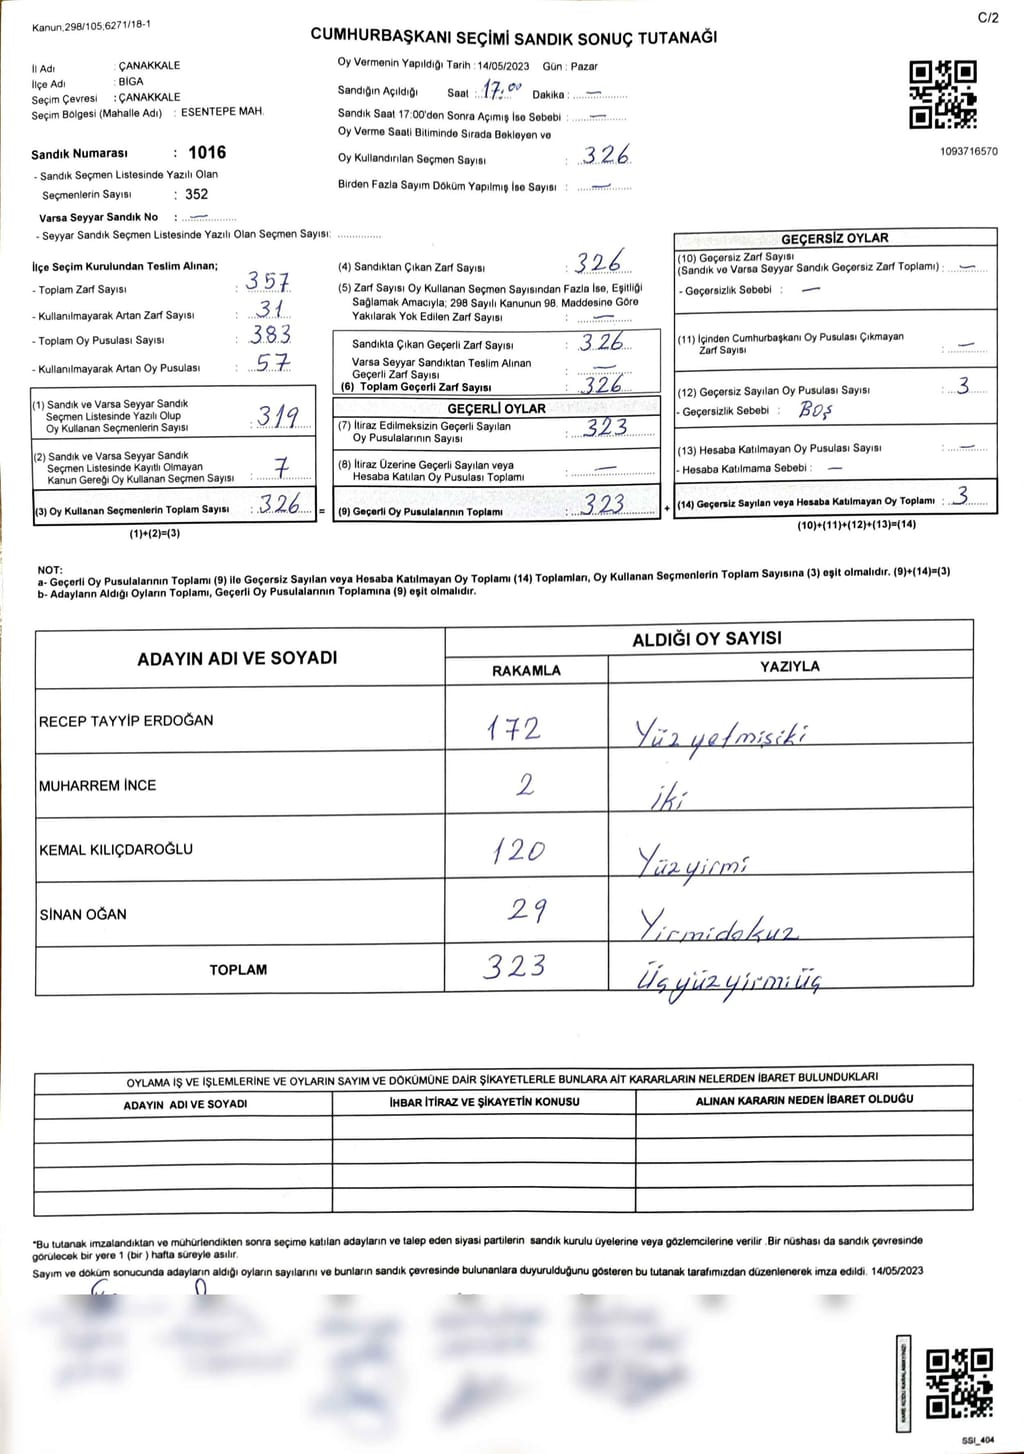 Kanun,298/105,6271/18-1
C/2
CUMHURBAŞKANI SEÇİMİ SANDIK SONUÇ TUTANAĞI
İl Adı : ÇANAKKALE
İlçe Adı : BİGA
Seçim Çevresi : ÇANAKKALE
Seçim Bölgesi (Mahalle Adı) : ESENTEPE MAH.
Sandık Numarası : 1016
- Sandık Seçmen Listesinde Yazılı Olan
Seçmenlerin Sayısı : 352
Varsa Seyyar Sandık No : —
- Seyyar Sandık Seçmen Listesinde Yazılı Olan Seçmen Sayısı: ..............
Oy Vermenin Yapıldığı Tarih : 14/05/2023 Gün : Pazar
Sandığın Açıldığı Saat : 17:00 Dakika : —
Sandık Saat 17:00'den Sonra Açımış İse Sebebi : —
Oy Verme Saati Bitiminde Sırada Bekleyen ve
Oy Kullandırılan Seçmen Sayısı : 326
Birden Fazla Sayım Döküm Yapılmış İse Sayısı : —
1093716570
İlçe Seçim Kurulundan Teslim Alınan;
- Toplam Zarf Sayısı : 357
- Kullanılmayarak Artan Zarf Sayısı : 31
- Toplam Oy Pusulası Sayısı : 383
- Kullanılmayarak Artan Oy Pusulası : 57
(1) Sandık ve Varsa Seyyar Sandık
Seçmen Listesinde Yazılı Olup
Oy Kullanan Seçmenlerin Sayısı : 319
(2) Sandık ve Varsa Seyyar Sandık
Seçmen Listesinde Kayıtlı Olmayan
Kanun Gereği Oy Kullanan Seçmen Sayısı : 7
(3) Oy Kullanan Seçmenlerin Toplam Sayısı : 326 =
(1)+(2)=(3)
(4) Sandıktan Çıkan Zarf Sayısı : 326
(5) Zarf Sayısı Oy Kullanan Seçmen Sayısından Fazla İse, Eşitliği
Sağlamak Amacıyla; 298 Sayılı Kanunun 98. Maddesine Göre
Yakılarak Yok Edilen Zarf Sayısı : —
Sandıkta Çıkan Geçerli Zarf Sayısı : 326
Varsa Seyyar Sandıktan Teslim Alınan
Geçerli Zarf Sayısı : —
(6) Toplam Geçerli Zarf Sayısı : 326
GEÇERLİ OYLAR
(7) İtiraz Edilmeksizin Geçerli Sayılan
Oy Pusulalarının Sayısı : 323
(8) İtiraz Üzerine Geçerli Sayılan veya
Hesaba Katılan Oy Pusulası Toplamı : —
(9) Geçerli Oy Pusulalarının Toplamı : 323 +
GEÇERSİZ OYLAR
(10) Geçersiz Zarf Sayısı
(Sandık ve Varsa Seyyar Sandık Geçersiz Zarf Toplamı) : —
- Geçersizlik Sebebi : —
(11) İçinden Cumhurbaşkanı Oy Pusulası Çıkmayan
Zarf Sayısı : —
(12) Geçersiz Sayılan Oy Pusulası Sayısı : 3
- Geçersizlik Sebebi : BOŞ
(13) Hesaba Katılmayan Oy Pusulası Sayısı : —
- Hesaba Katılmama Sebebi : —
(14) Geçersiz Sayılan veya Hesaba Katılmayan Oy Toplamı : 3
(10)+(11)+(12)+(13)=(14)
NOT:
a- Geçerli Oy Pusulalarının Toplamı (9) ile Geçersiz Sayılan veya Hesaba Katılmayan Oy Toplamı (14) Toplamları, Oy Kullanan Seçmenlerin Toplam Sayısına (3) eşit olmalıdır. (9)+(14)=(3)
b- Adayların Aldığı Oyların Toplamı, Geçerli Oy Pusulalarının Toplamına (9) eşit olmalıdır.
ADAYIN ADI VE SOYADI
ALDIĞI OY SAYISI
RAKAMLA YAZIYLA
RECEP TAYYİP ERDOĞAN 172 Yüz yetmişiki
MUHARREM İNCE 2 iki
KEMAL KILIÇDAROĞLU 120 Yüzyirmi
SİNAN OĞAN 29 Yirmidokuz
TOPLAM 323 Üçyüzyirmiüç
OYLAMA İŞ VE İŞLEMLERİNE VE OYLARIN SAYIM VE DÖKÜMÜNE DAİR ŞİKAYETLERLE BUNLARA AİT KARARLARIN NELERDEN İBARET BULUNDUKLARI
ADAYIN ADI VE SOYADI İHBAR İTİRAZ VE ŞİKAYETİN KONUSU ALINAN KARARIN NEDEN İBARET OLDUĞU
*Bu tutanak imzalandıktan ve mühürlendikten sonra seçime katılan adayların ve talep eden siyasi partilerin sandık kurulu üyelerine veya gözlemcilerine verilir .Bir nüshası da sandık çevresinde
görülecek bir yere 1 (bir ) hafta süreyle asılır.
Sayım ve döküm sonucunda adayların aldığı oyların sayılarını ve bunların sandık çevresinde bulunanlara duyurulduğunu gösteren bu tutanak tarafımızdan düzenlenerek imza edildi. 14/05/2023
KARE KODU KARALAMAYINIZ!
SSI_404